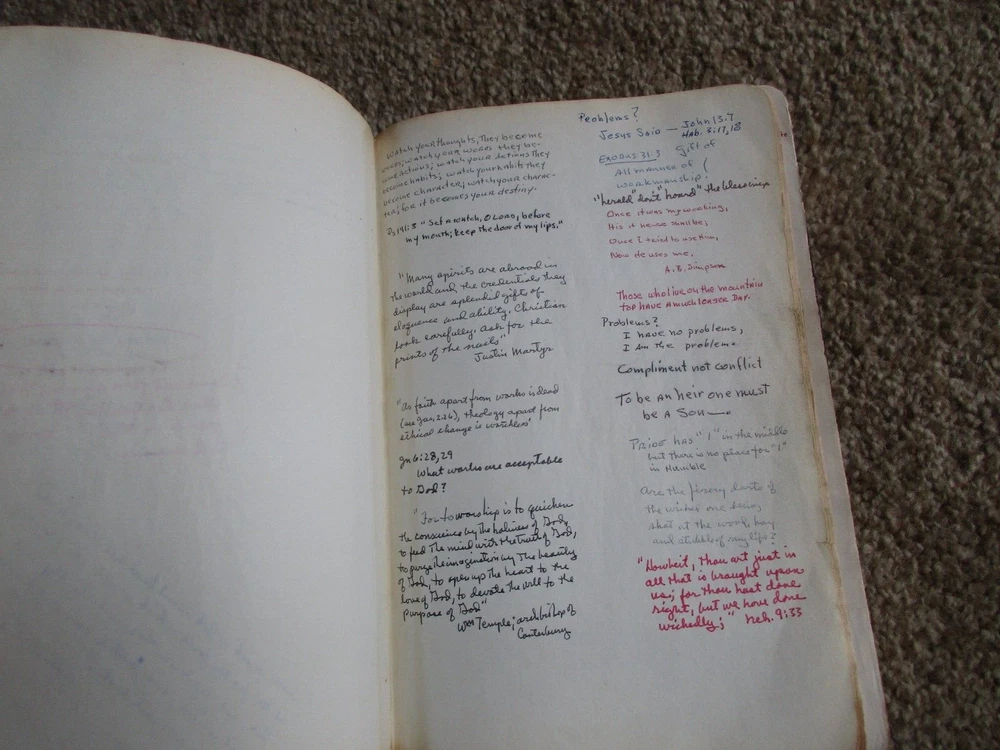 Watch your thoughts, they become
words; watch your words they be-
come actions; watch your actions they
become habits; watch your habits they
become character; watch your charac-
ter; for it becomes your destiny.
Ps 141:3 "Set a watch, O Lord, before
my mouth; keep the door of my lips."
"Many spirits are abroad in
the world and the credentials they
display are splendid gifts of
eloquence and ability. Christian
look carefully. Ask for the
prints of the nails"
Justin Martyr
"As faith apart from works is dead
(see Jas. 2:26), theology apart from
ethical change is worthless'
Jn 6:28,29
What works are acceptable
to God?
"For to worship is to quicken
the conscience by the holiness of God,
to feed the mind with the truth of God,
to purge the imagination by the beauty
of God, to open up the heart to the
love of God, to devote the will to the
purpose of God"
Wm Temple; archbishop of
Canterbury
Problems?
Jesus Said — John 13:7
Hab. 3:17,18
Exodus 31:3 Gift of
All manner of
workmanship.
"herald" don't "hoard" the blessings
Once it was my working,
His it hence shall be;
Once I tried to use Him,
Now He uses me.
A.B. Simpson
Those who live on the mountain
top have a much longer Day.
Problems?
I have no problems,
I Am the problem.
Compliment not conflict
To be an heir one must
be a Son —.
Pride has "I" in the middle
but there is no place for "I"
in Humble
Are the fiery darts of
the wicked one being
shot at the wood, hay
and stubble of my life?
"Howbeit, thou art just in
all that is brought upon
us; for thou hast done
right, but we have done
wickedly;" Neh. 9:33